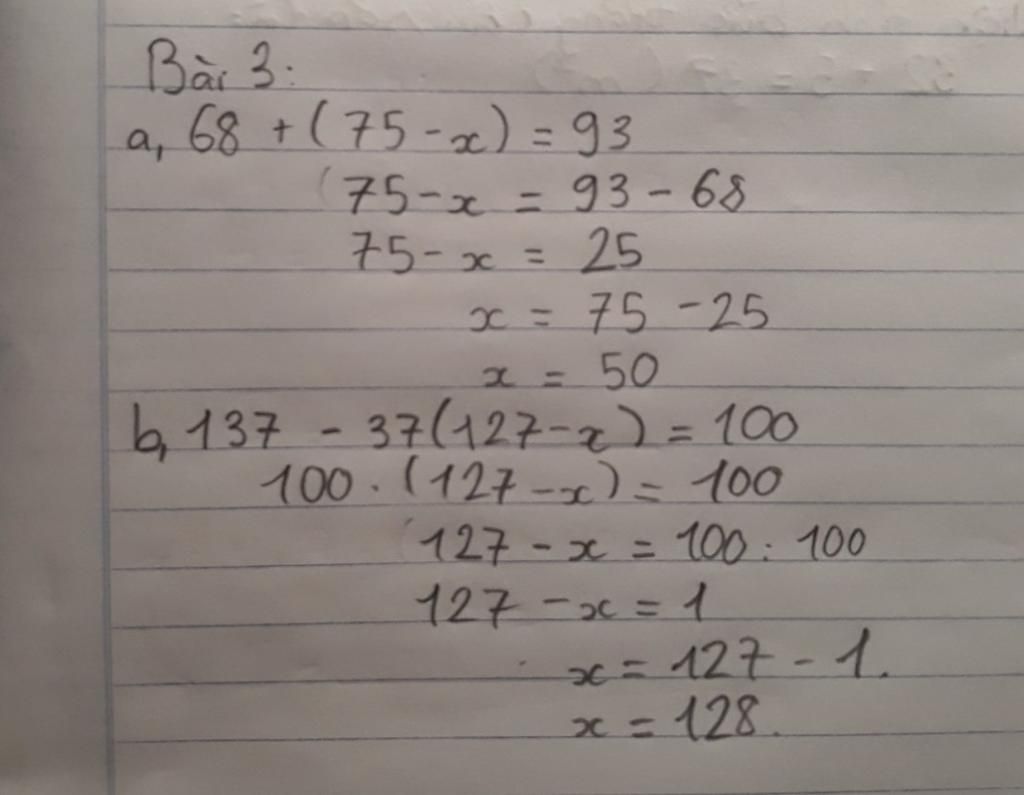 Bài 3:
a, 68 + (75 - x) = 93
75 - x = 93 - 68
75 - x = 25
x = 75 - 25
x = 50
b, 137 - 37(127 - x) = 100
100 . (127 - x) = 100
127 - x = 100 : 100
127 - x = 1
x = 127 - 1.
x = 128.